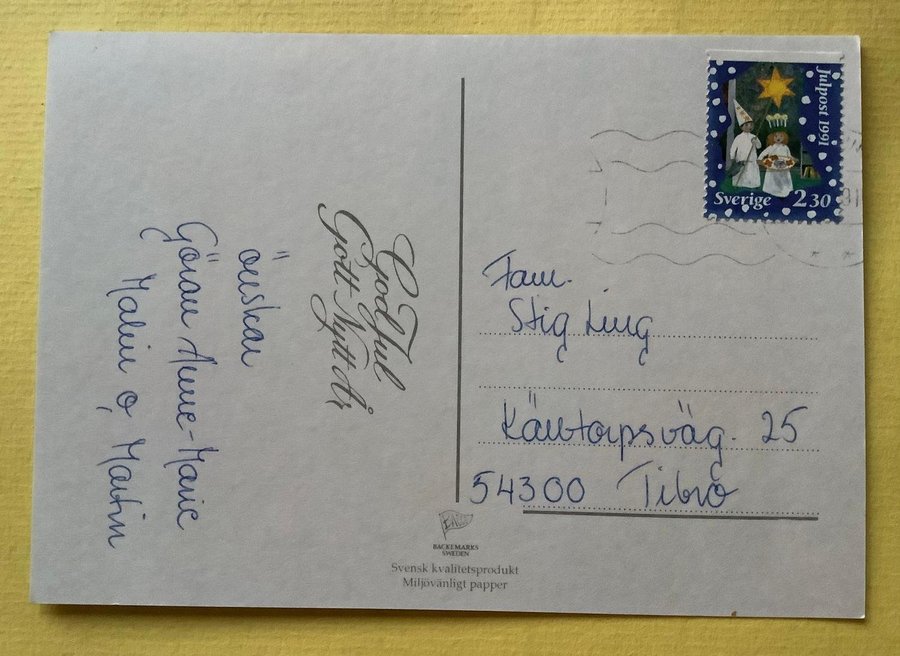 God Jul
Gott Nytt År
önskar
Göran Anne-Marie
Malin o Martin
Julpost 1991
Sverige 2 30
Fam.
Stig Ling
Käntorpsväg. 25
54300 Tibro
BACKEMARKS
SWEDEN
Svensk kvalitetsprodukt
Miljövänligt papper